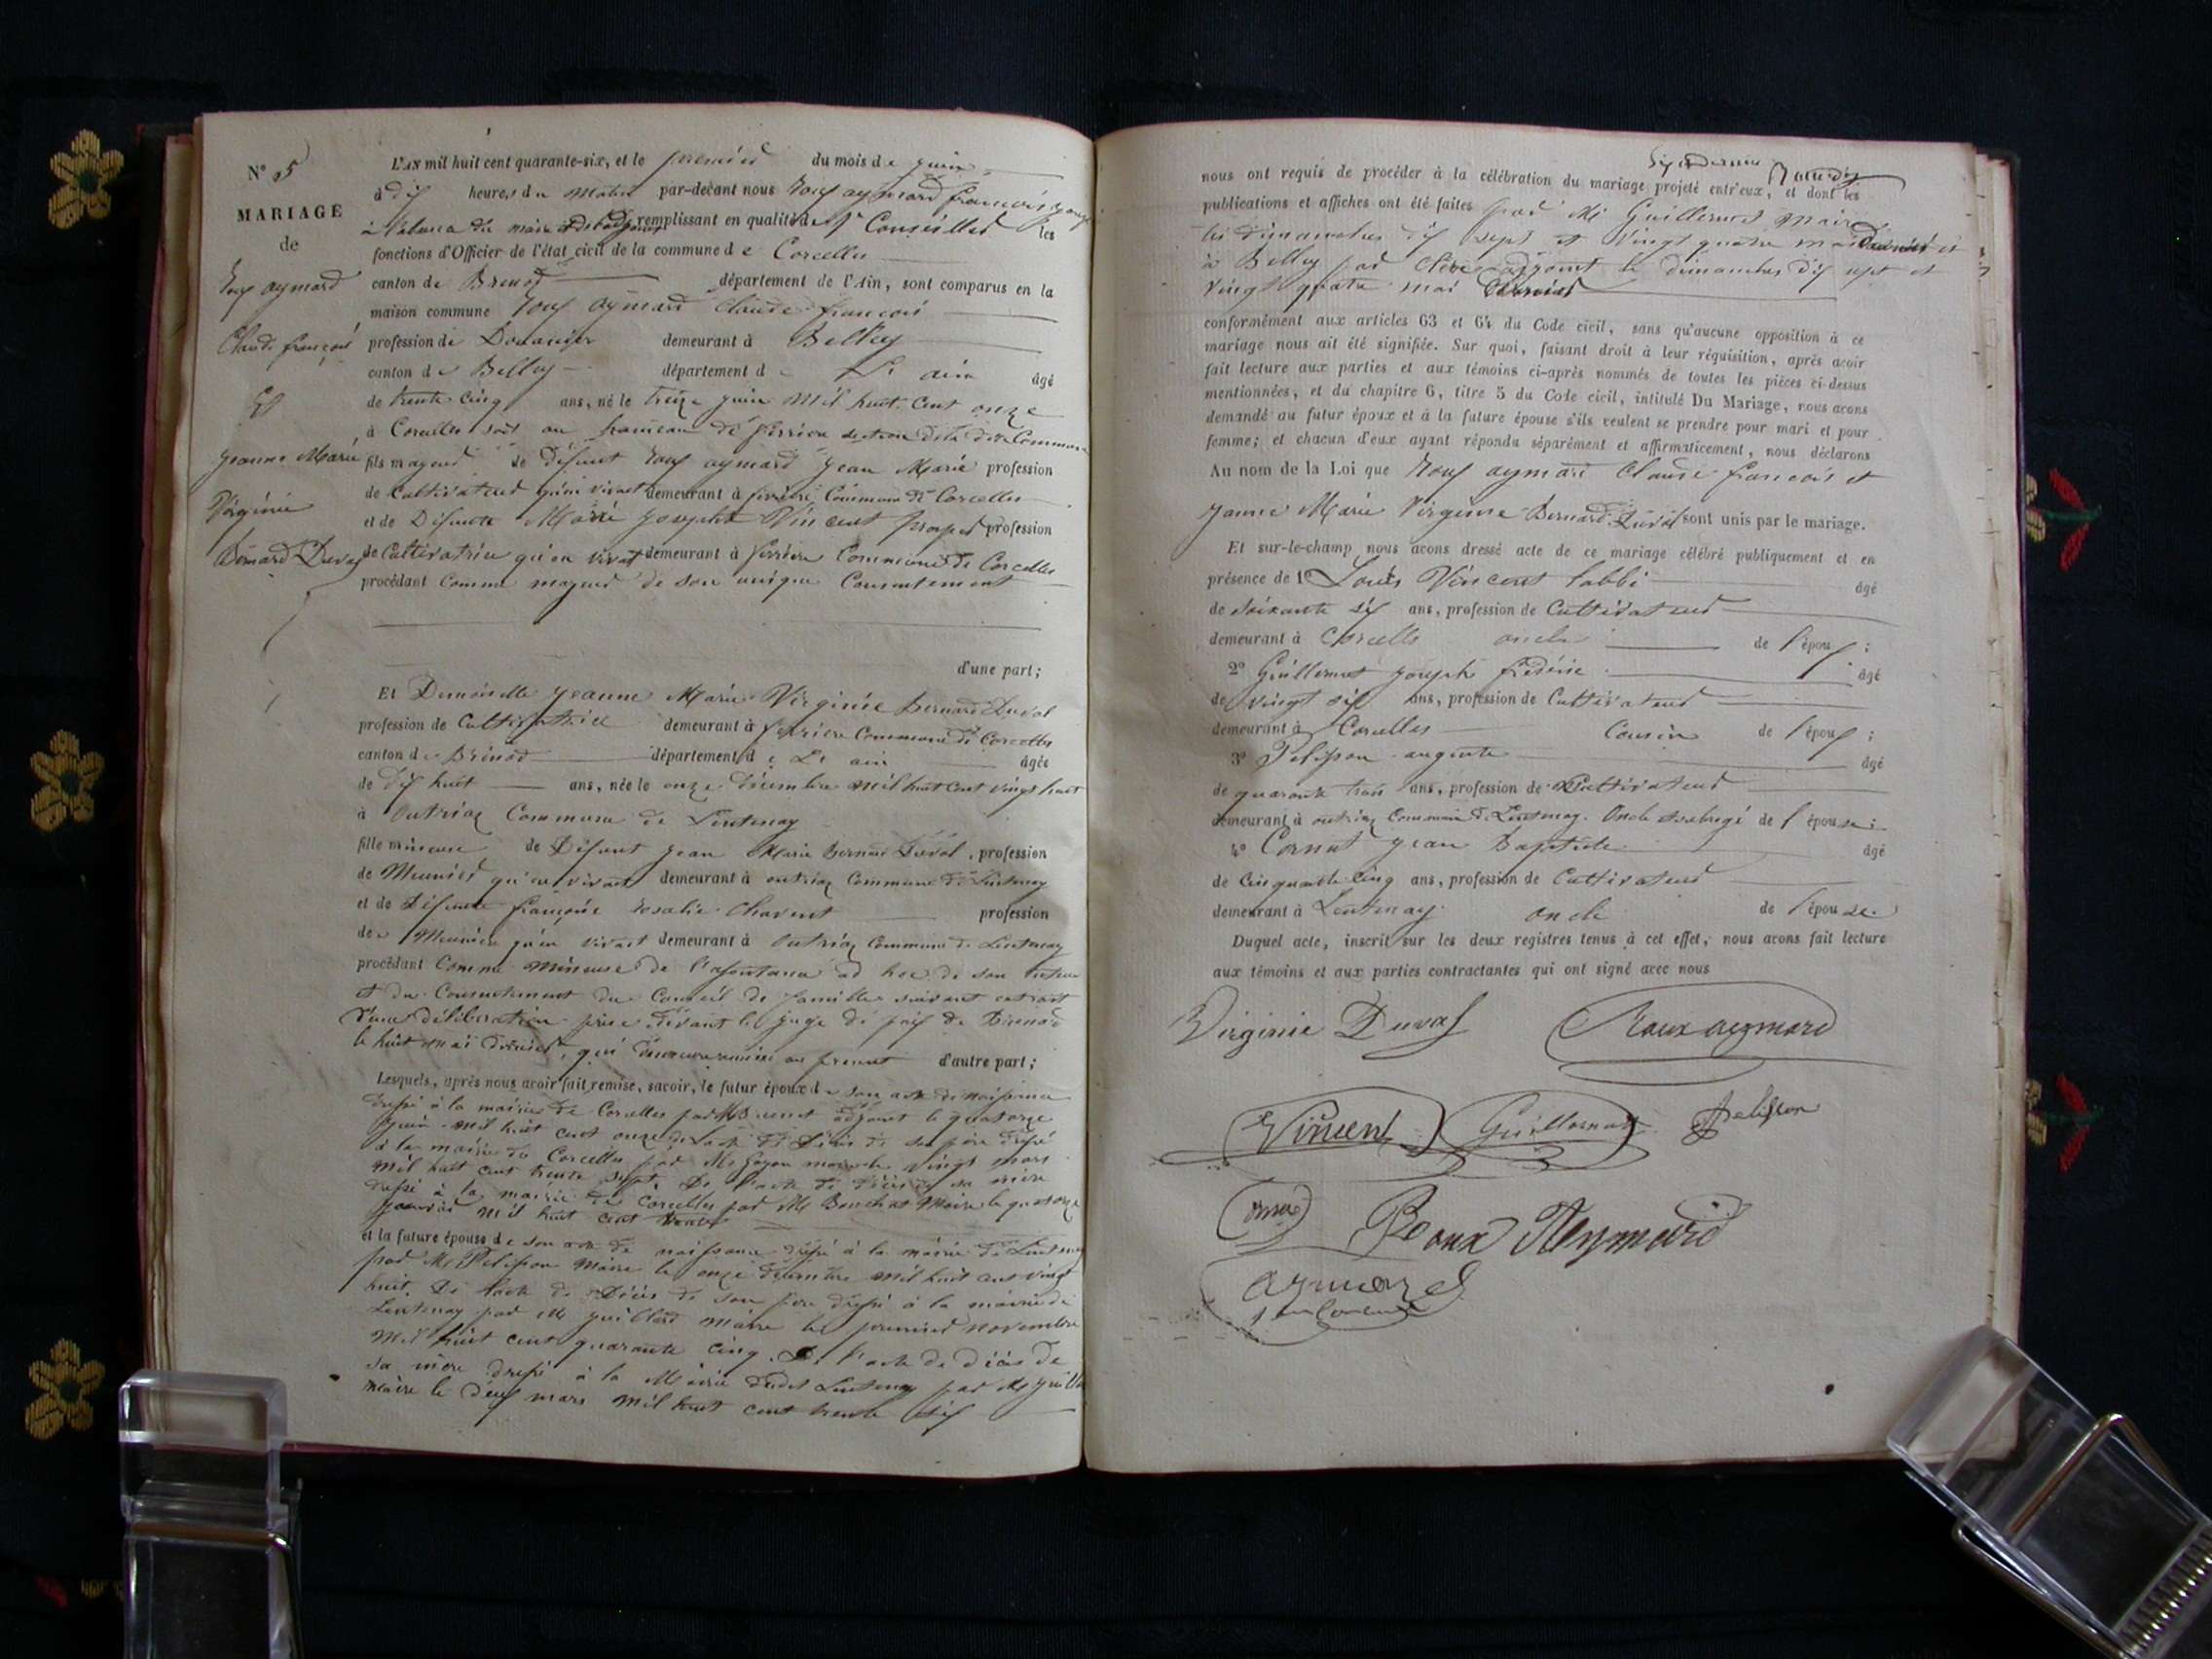 N° 5
MARIAGE
de
Roux aymard
Claude françois
Et
jeanne Marie
Virginie
Bernard Duval
L'AN mil huit cent quarante-six, et le premier du mois de juin
à dix heures du matin par-devant nous Roux aymard françois
du maire remplissant en qualité de Conseiller les
fonctions d'Officier de l'état civil de la commune de Corcelles
canton de Brenod département de l'Ain, sont comparus en la
maison commune Roux aymard Claude françois
profession de Douanier demeurant à Belley
canton de Belley département de L'ain âgé
de trente cinq ans, né le treize juin mil huit cent onze
à Corcelles soit au hameau de ferrière section de la dite Commune
fils majeur de Défunt Roux aymard jean Marie profession
de Cultivateur qu'en vivant demeurant à ferrière Commune de Corcelles
et de Défunte Marie josephte Vincent profession
de Cultivatrice qu'en vivant demeurant à ferrière Commune de Corcelles
procédant Comme majeur de son unique Consentement
d'une part;
Et Demoiselle jeanne Marie Virginie Bernard Duval
profession de Cultivatrice demeurant à ferrière Commune de Corcelles
canton de Brénod département de L'ain âgée
de dix huit ans, née le onze décembre mil huit cent vingt huit
à Outriaz Commune de Lentenay
fille mineure de Défunt jean Marie Bernard Duval, profession
de Meunier qu'en vivant demeurant à outriaz Commune de Lentenay
et de Défunte françoise rosalie Charvet profession
de Meunière qu'en vivant demeurant à Outriaz Commune de Lentenay
procédant Comme mineure de ad hoc de son tuteur
et du Consentement du Conseil de famille suivant extrait
d'une délibération prise devant le juge de paix de Brenod
le huit mai dernier, qui au présent d'autre part;
Lesquels, après nous avoir fait remise, savoir, le futur époux de son acte de naissance
dressé à la mairie de Corcelles par Mr adjoint le quatorze
juin mil huit cent onze de l'acte de Décès de son père dressé
à la mairie de Corcelles par Mr maire le vingt mars
mil huit cent trente sept. De l'acte de décès de sa mère
dressé à la mairie de Corcelles par Mr Maire le quatorze
janvier mil huit cent trente
et la future épouse de son acte de naissance dressé à la mairie de Lentenay
par Mr Pelisson Maire le onze décembre mil huit cent vingt
huit. De l'acte de Décès de son père dressé à la mairie de
Lentenay par Mr maire le premier novembre
mil huit cent quarante cinq. De l'acte de décès de
sa mère dressé à la Mairie dudit Lentenay par Mr
maire le deux mars mil huit cent trente six
nous ont requis de procéder à la célébration du mariage projeté entr'eux, et dont les
publications et affiches ont été faites par Mr Guillermet maire
les dimanches dix sept et vingt quatre mai dernier et
à Belley par adjoint le dimanches dix sept et
vingt quatre mai dernier
conformément aux articles 63 et 64 du Code civil, sans qu'aucune opposition à ce
mariage nous ait été signifiée. Sur quoi, faisant droit à leur réquisition, après avoir
fait lecture aux parties et aux témoins ci-après nommés de toutes les pièces ci-dessus
mentionnées, et du chapitre 6, titre 5 du Code civil, intitulé Du Mariage, nous avons
demandé au futur époux et à la future épouse s'ils veulent se prendre pour mari et pour
femme; et chacun d'eux ayant répondu séparément et affirmativement, nous déclarons
Au nom de la Loi que Roux aymard Claude françois et
jeanne Marie Virginie Bernard Duval sont unis par le mariage.
Et sur-le-champ nous avons dressé acte de ce mariage célébré publiquement et en
présence de 1° Louis Vincent âgé
de soixante six ans, profession de Cultivateur
demeurant à Corcelles oncle de l'époux;
2° Guillermet joseph frédéric âgé
de vingt six ans, profession de Cultivateur
demeurant à Corcelles Cousin de l'époux;
3° Pelisson auguste âgé
de quarante trois ans, profession de Cultivateur
demeurant à outriaz Commune de Lentenay. Oncle de l'épouse;
4° Cornut jean Baptiste âgé
de Cinquante cinq ans, profession de Cultivateur
demeurant à Lentenay oncle de l'épouse.
Duquel acte, inscrit sur les deux registres tenus à cet effet, nous avons fait lecture
aux témoins et aux parties contractantes qui ont signé avec nous
Virginie Duval Roux aymard
Vincent Guillermet Pelisson
Roux Aymard
Aymard